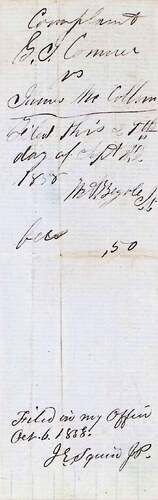 Complaint
E. T. Conner
vs
James Mc Collum
Filed this 27th
day of Sept A.D.
1858
fees ,50
Filed in my Office
Oct. 6. 1858.
J E Squire J.P.